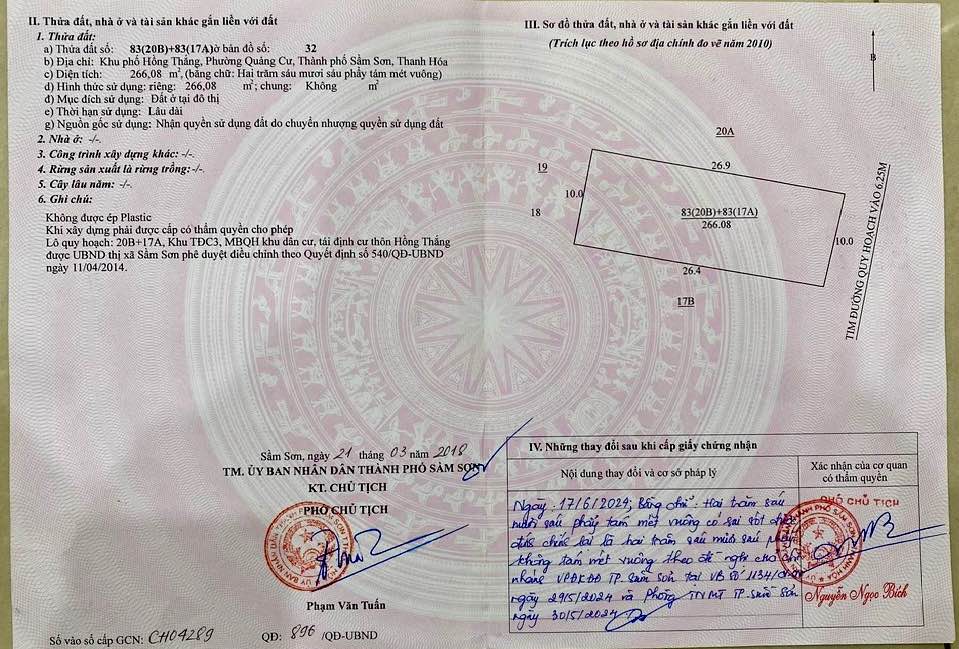 II. Thửa đất, nhà ở và tài sản khác gắn liền với đất
1. Thửa đất:
a) Thửa đất số: 83(20B)+83(17A)ờ bản đồ số: 32
b) Địa chỉ: Khu phố Hồng Thắng, Phường Quảng Cư, Thành phố Sầm Sơn, Thanh Hóa
c) Diện tích: 266,08 m², (bằng chữ: Hai trăm sáu mươi sáu phẩy tám mét vuông)
d) Hình thức sử dụng: riêng: 266,08 m²; chung: Không m²
đ) Mục đích sử dụng: Đất ở tại đô thị
e) Thời hạn sử dụng: Lâu dài
g) Nguồn gốc sử dụng: Nhận quyền sử dụng đất do chuyển nhượng quyền sử dụng đất
2. Nhà ở: -/-.
3. Công trình xây dựng khác: -/-.
4. Rừng sản xuất là rừng trồng: -/-.
5. Cây lâu năm: -/-.
6. Ghi chú:
Không được ép Plastic
Khi xây dựng phải được cấp có thẩm quyền cho phép
Lô quy hoạch: 20B+17A, Khu TĐC3, MBQH khu dân cư, tái định cư thôn Hồng Thắng
được UBND thị xã Sầm Sơn phê duyệt điều chỉnh theo Quyết định số 540/QĐ-UBND
ngày 11/04/2014.
Sầm Sơn, ngày 21 tháng 03 năm 2018
TM. ỦY BAN NHÂN DÂN THÀNH PHỐ SẦM SƠN
KT. CHỦ TỊCH
PHÓ CHỦ TỊCH
Phạm Văn Tuấn
Số vào sổ cấp GCN: CH04289 QĐ: 896 /QĐ-UBND
III. Sơ đồ thửa đất, nhà ở và tài sản khác gắn liền với đất
(Trích lục theo hồ sơ địa chính đo vẽ năm 2010)
B
20A
19
26.9
10.0
18
83(20B)+83(17A)
266.08
10.0
26.4
17B
TIM ĐƯỜNG QUY HOẠCH VÀO 6.25M
IV. Những thay đổi sau khi cấp giấy chứng nhận
Nội dung thay đổi và cơ sở pháp lý
Xác nhận của cơ quan
có thẩm quyền
Ngày 17/6/2024; Bằng chữ: Hai trăm sáu
mươi sáu phẩy tám mét vuông có sai sót
lại là hai trăm sáu mươi sáu phẩy
không tám mét vuông theo đề nghị của chi
nhánh VPĐKĐĐ TP. Sầm Sơn tại VB số 1134/
ngày 29/5/2024 và Phòng TNMT TP. Sầm Sơn
ngày 30/5/2024
PHÓ CHỦ TỊCH
Nguyễn Ngọc Bích